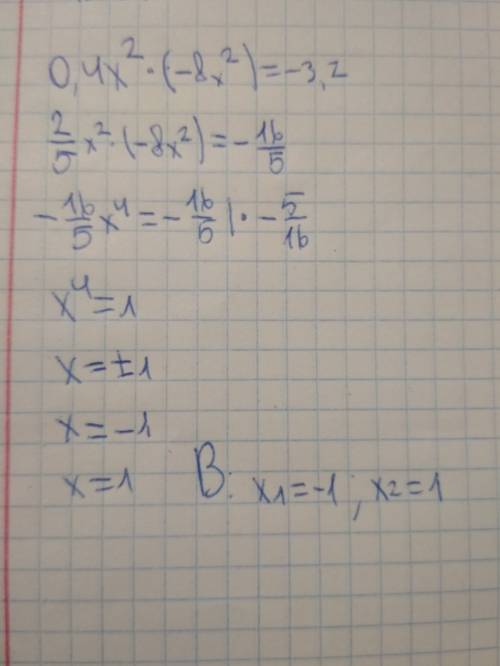 0,4x²·(-8x²)=-3,2
2/5 x²·(-8x²)=-16/5
-16/5 x⁴=-16/5 |·-5/16
x⁴=1
x=±1
x=-1
x=1 В: x1=-1; x2=1